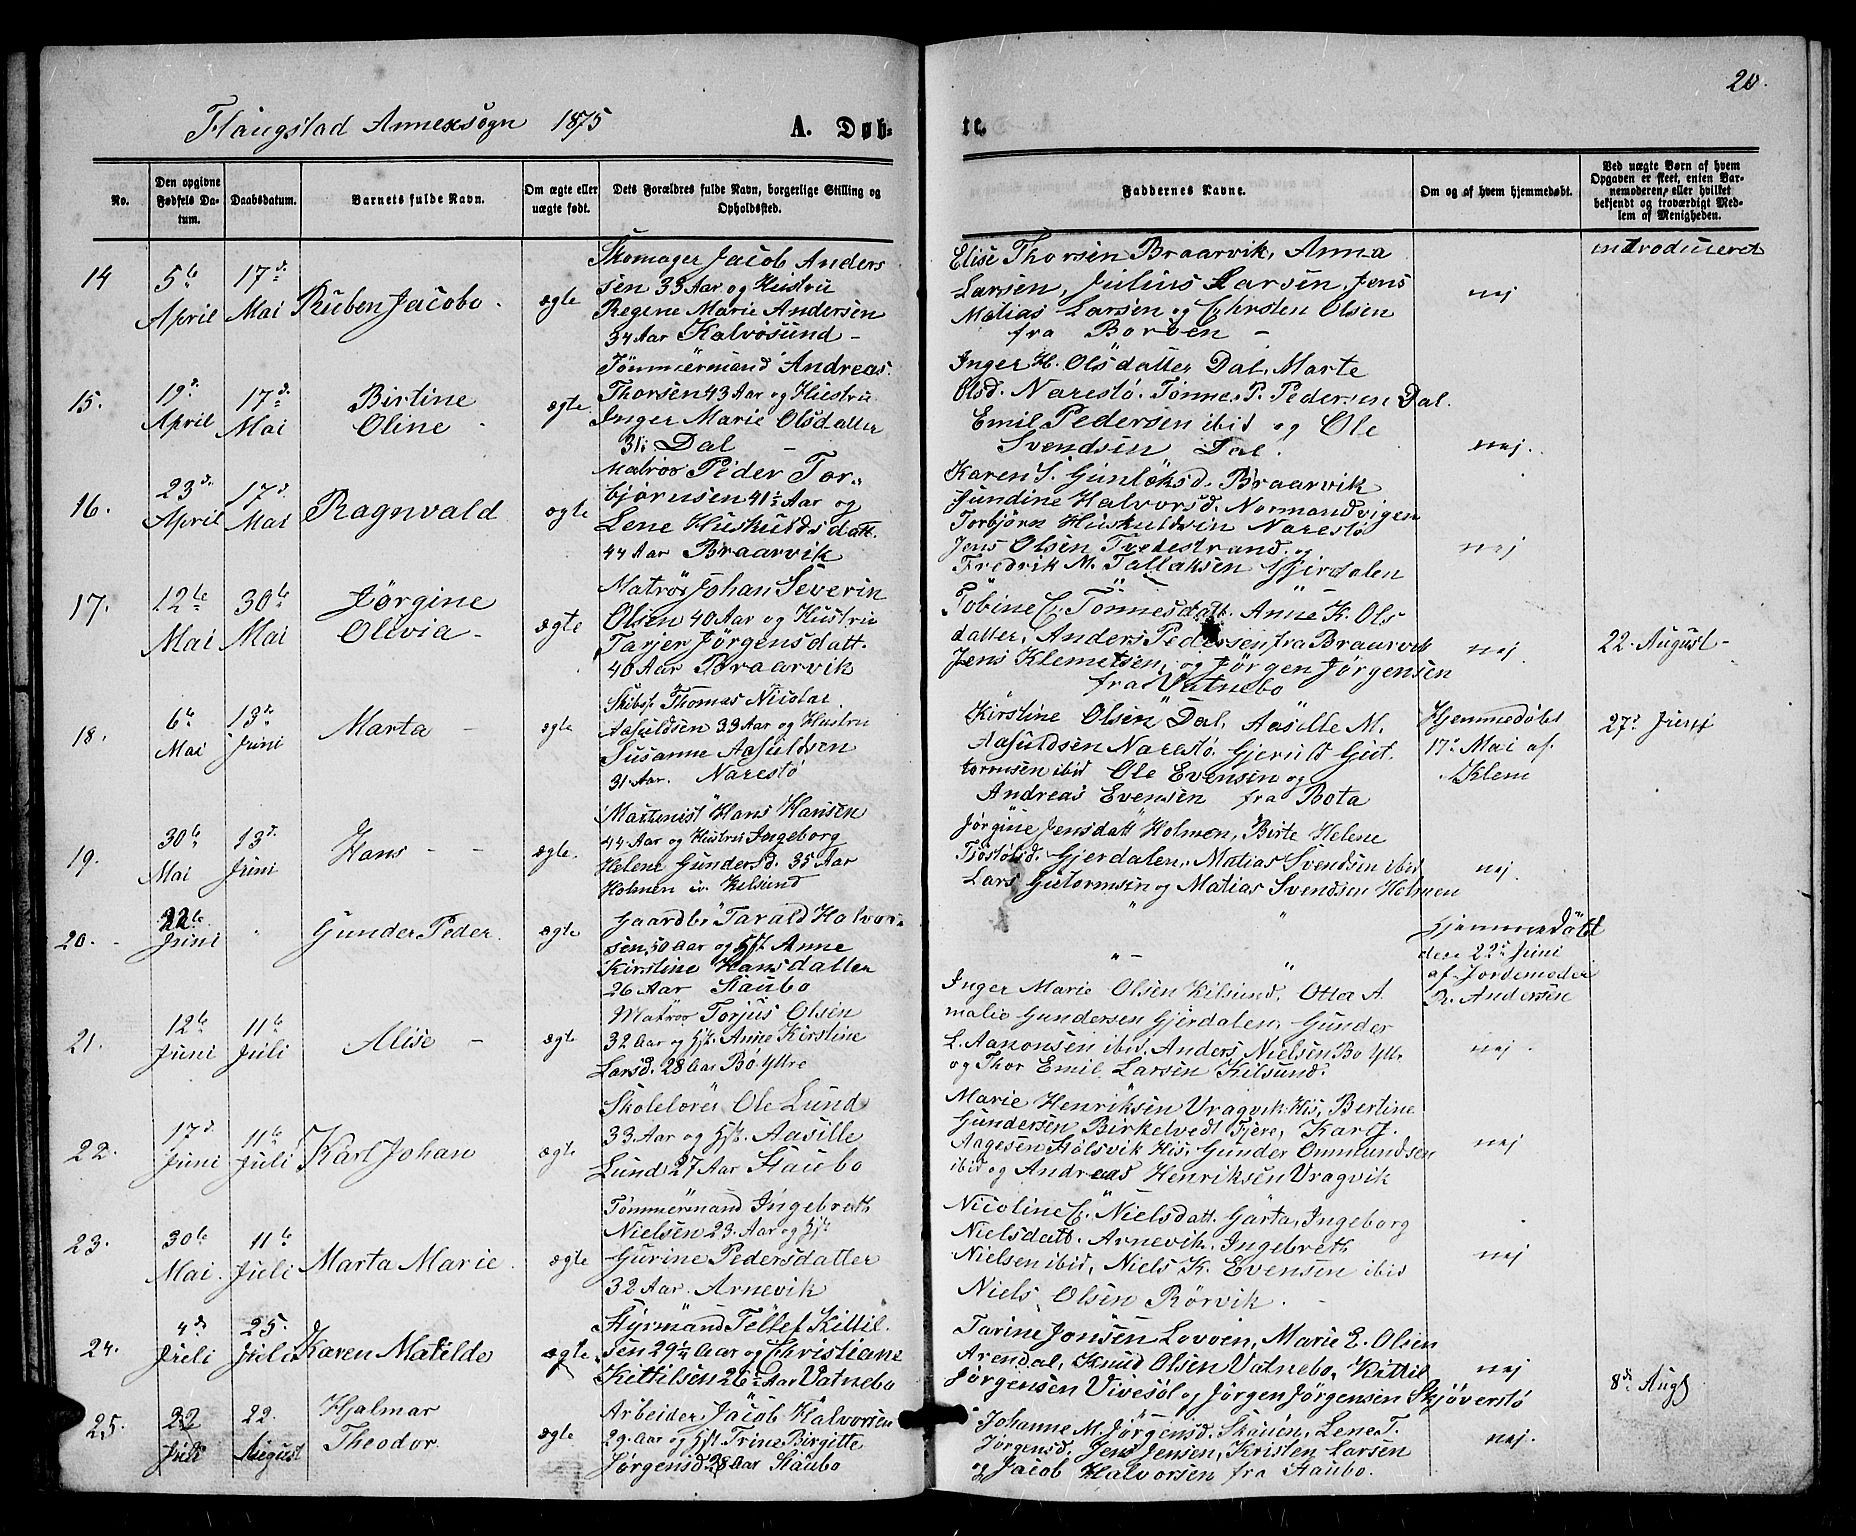 20.
Flangstad Annexsogn 1875
A. Døb-
te.
No.
Den opgivne Fødsels Datum.
Daabsdatum.
Barnets fulde Navn.
Om ægte eller uægte født.
Dets Forældres fulde Navn, borgerlige Stilling og Opholdssted.
Faddernes Navne.
Om og af hvem hjemmedøbt.
Ved uægte Børn af hvem Opgaven er skeet, enten Barnemoderen, eller hvilket bekjendt og troværdigt Medlem af Menigheden.
14
5te April
17de Mai
Ruben Jacobo
ægte
Skomager Jacob Anders
sen 33 Aar og Hustru
Regine Marie Andersen
34 Aar Kalvøsund -
Elise Thorsen Braarvik, Anna
Larsen, Julius Larsen, Jens
Matias Larsen og Chrsten Olsen
fra Borøen -
nej
introduceret
15.
19de April
17de Mai
Birtine
Oline
ægte
Tømmermand Andreas
Thorsen 43 Aar og Hustru
Inger Marie Olsdatter
31. Dal -
Inger H. Olsdatter Dal, Marte
Olsd. Narestø. Tønne P. Pedersen Dal.
Emil Pedersen ibid og Ole
Svendsen Dal.
nej.
16.
23de April
17de Mai
Ragnvald
ægte
Matros Peder Tor-
bjørnsen 41½ Aar og
Lene Huskuldsdatt.
44 Aar Braarvik
Karen S. Gunløksd. Braarvik
Gundine Halvorsd. Normandvigen
Torbjørn Huskuldsen Narestø
Jens Olsen Tvedestrand og
Fredrik M. Tallaksen Gjerdalen
nej
17.
12te Mai
30te Mai
Jørgine
Olivia -
ægte
Matros Johan Severin
Olsen 40 Aar og Hustru
Tarjer Jörgensdatt.
40 Aar Braarvik
Tobine C. Tönnesdatt. Anne K. Ols
datter, Anders Pedersen fra Braarvik
Jens Klemetsen, og Jörgen Jörgensen
fra Vatnebo
nej
22. August -
18.
6te Mai
13de Juni
Marta -
ægte
Skibsf. Thomas Nicolai
Aasuldsen 33 Aar og Hustru
Susanne Aasuldsen
31 Aar. Narestö
Kirstine Olsen Dal, Aasille M.
Aasuldsen Narestø. Gjeruld Gut
tormsen ibid Ole Evensen og
Andreas Evensen fra Bota
Hjemmedøbt
17de Mai af
Klem
27de Juni
19.
30te Mai
13de Juni
Hans - -
ægte.
Hans Hansen
44 Aar og Hustru Ingeborg
Helene Gundersd. 35 Aar
Holmen iv. Kilsund
Jørgine Jensdatt Holmen, Birte Helene
Tjøstølsd. Gjerdalen, Matias Svendsen ibid
Lars Gutormsen og Matias Svendsen Holmen
nej
20.
22de Juni
Gunder Peder
ægte
Gaardbr. Tarald Halvor-
sen 50 Aar og Hst. Anne
Kirstine Hansdatter
26 Aar Staubo
Hjemmedöbt
den 22de Juni
af Jordemoder
R. Andersen
21.
12te Juni
11te Juli
Alise -
ægte
Matros Torjus Olsen
32 Aar og Hst. Anne Kirstine
Larsd. 28 Aar Bo Yttre
Inger Marie Olsen Kilsund, Otta A.
malie Gundersen Gjerdalen, Gunder
L. Aanonsen ibid. Anders Nielsen Bo Ytt.
og Thor Emil Larsen Kilsund.
nej
22.
17de Juni
11te Juli
Karl Johan
ægte
Skolelærer Ole Lund
33 Aar og Hst. Aasille
Lund 27 Aar Staubo
Marie Henriksen Vragvik His, Bertine
Gundersen Birkelvedt Fjere, Karl J.
Aagesen Stølsvik His, Gunder Ommundsen
ibid og Andreas Henriksen Vragvik
nej
23.
30te Mai
11te Juli
Marta Marie
ægte
Tømmermand Ingebreth
Nielsen 23 Aar og Hst
Gurine Pedersdatter
32 Aar. Arnevik
Nicoline C. Nielsdatt. Garta, Ingeborg
Nielsdatt. Arnevik. Ingebreth
Nielsen ibid, Niels K. Evensen ibid
Niels Olsen Rørvik. -
nej
24.
4de Juli
25. Juli
Karen Matilde
ægte
Styrmand Tellef Kittil
sen 29½ Aar og Christiane
Kittilsen 26½ Aar Vatnebo
Tarine Jonsen Lovøen, Marie E. Olsen
Arendal, Knud Olsen Vatnebo, Kittil
Jörgensen Vivesöl og Jörgen Jörgensen Skjöverstö
nej
8de Augs
25.
22 Juli
22. August
Hjalmar
Theodor.
ægte
Arbeider, Jacob Halvorsen
29 Aar og Hst. Trine Birgitte
Jörgensd 28 Aar Staubo
Johanne M. Jörgensd. Skauen, Lene T.
Jørgensd. Jens Jensen, Kristen Larsen
og Jacob Halvorsen fra Staubo.
nej.